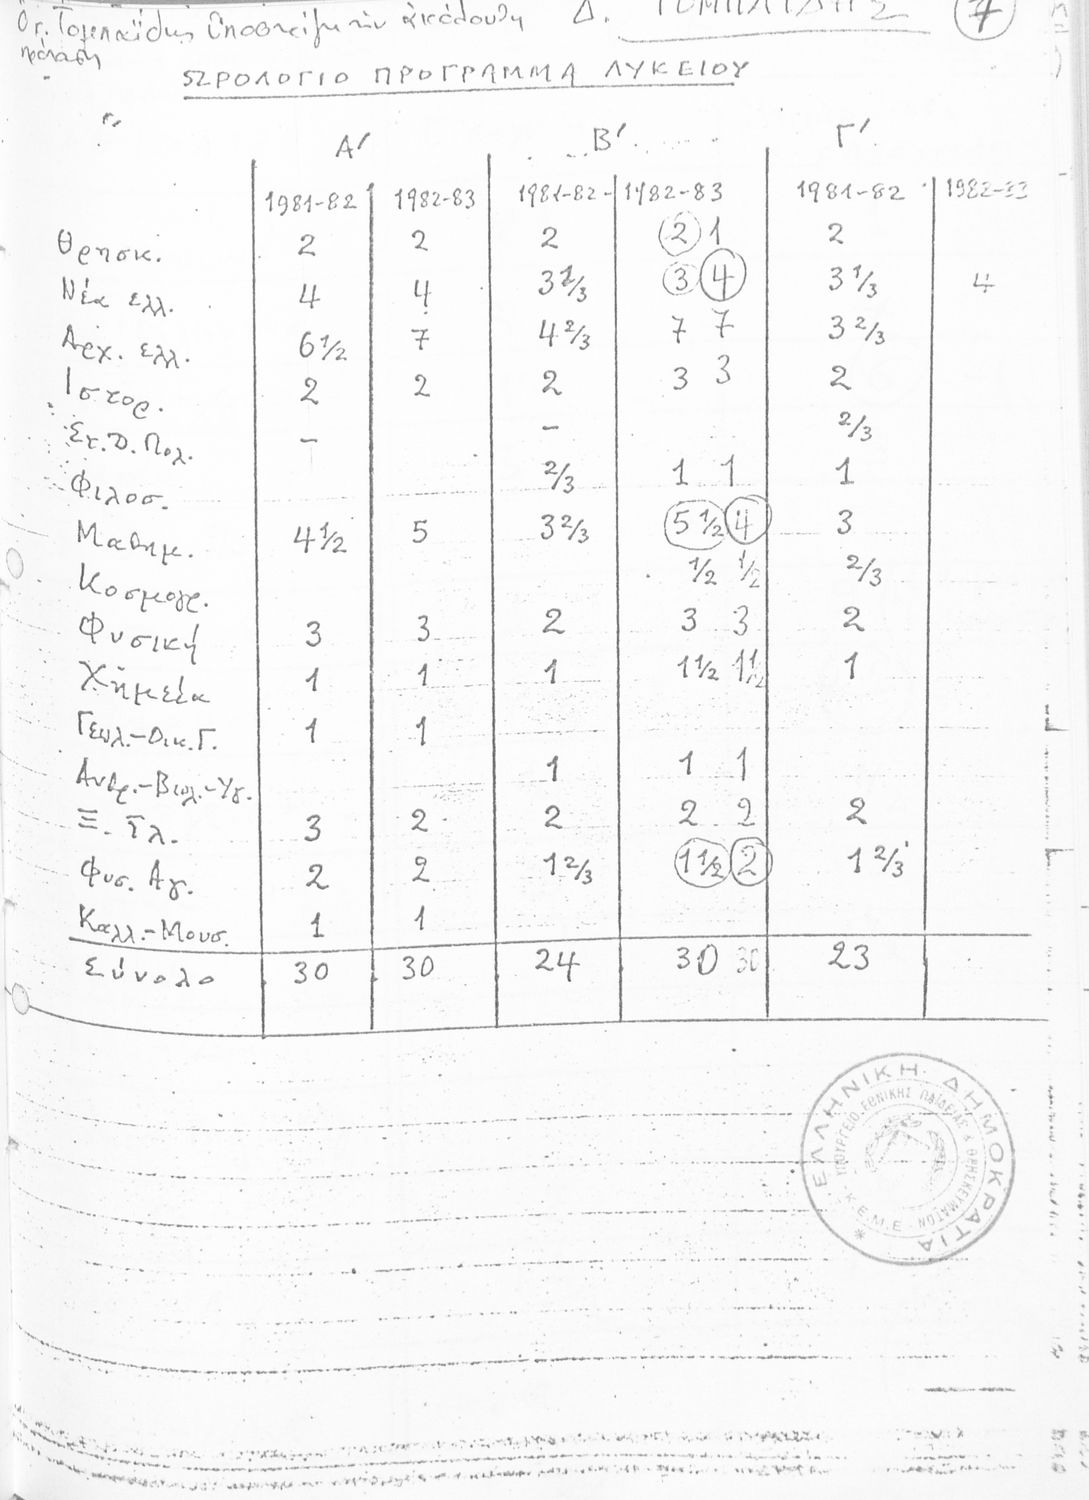 Ὁ κ. Τομπαΐδης ὑποστηρίζει τὴν ἀκόλουθη Δ. ΤΟΜΠΑΪΔΗΣ 7
πρόταση
ΩΡΟΛΟΓΙΟ ΠΡΟΓΡΑΜΜΑ ΛΥΚΕΙΟΥ
Α′ Β′ Γ′
1981-82 1982-83 1981-82 1982-83 1981-82 1982-83
Θρησκ. 2 2 2 2 1 2
Νέα ελλ. 4 4 3 1/3 3 4 3 1/3 4
Αρχ. ελλ. 6 1/2 7 4 2/3 7 7 3 2/3
Ιστορ. 2 2 2 3 3 2
Στ.Δ.Πολ. - - 2/3
Φιλοσ. 2/3 1 1 1
Μαθημ. 4 1/2 5 3 2/3 5 1/2 4 3
Κοσμογρ. 1/2 1/2 2/3
Φυσική 3 3 2 3 3 2
Χημεία 1 1 1 1 1/2 1 1/2 1
Γεωλ.-Οικ.Γ. 1 1
Ανθρ.-Βιολ.-Υγ. 1 1 1
Ξ. Γλ. 3 2 2 2 2 2
Φυσ. Αγ. 2 2 1 2/3 1 1/2 2 1 2/3
Καλλ.-Μουσ. 1 1
Σύνολο 30 30 24 30 30 23
ΕΛΛΗΝΙΚΗ ΔΗΜΟΚΡΑΤΙΑ
ΥΠΟΥΡΓΕΙΟ ΕΘΝΙΚΗΣ ΠΑΙΔΕΙΑΣ & ΘΡΗΣΚΕΥΜΑΤΩΝ
Κ.Ε.Μ.Ε.